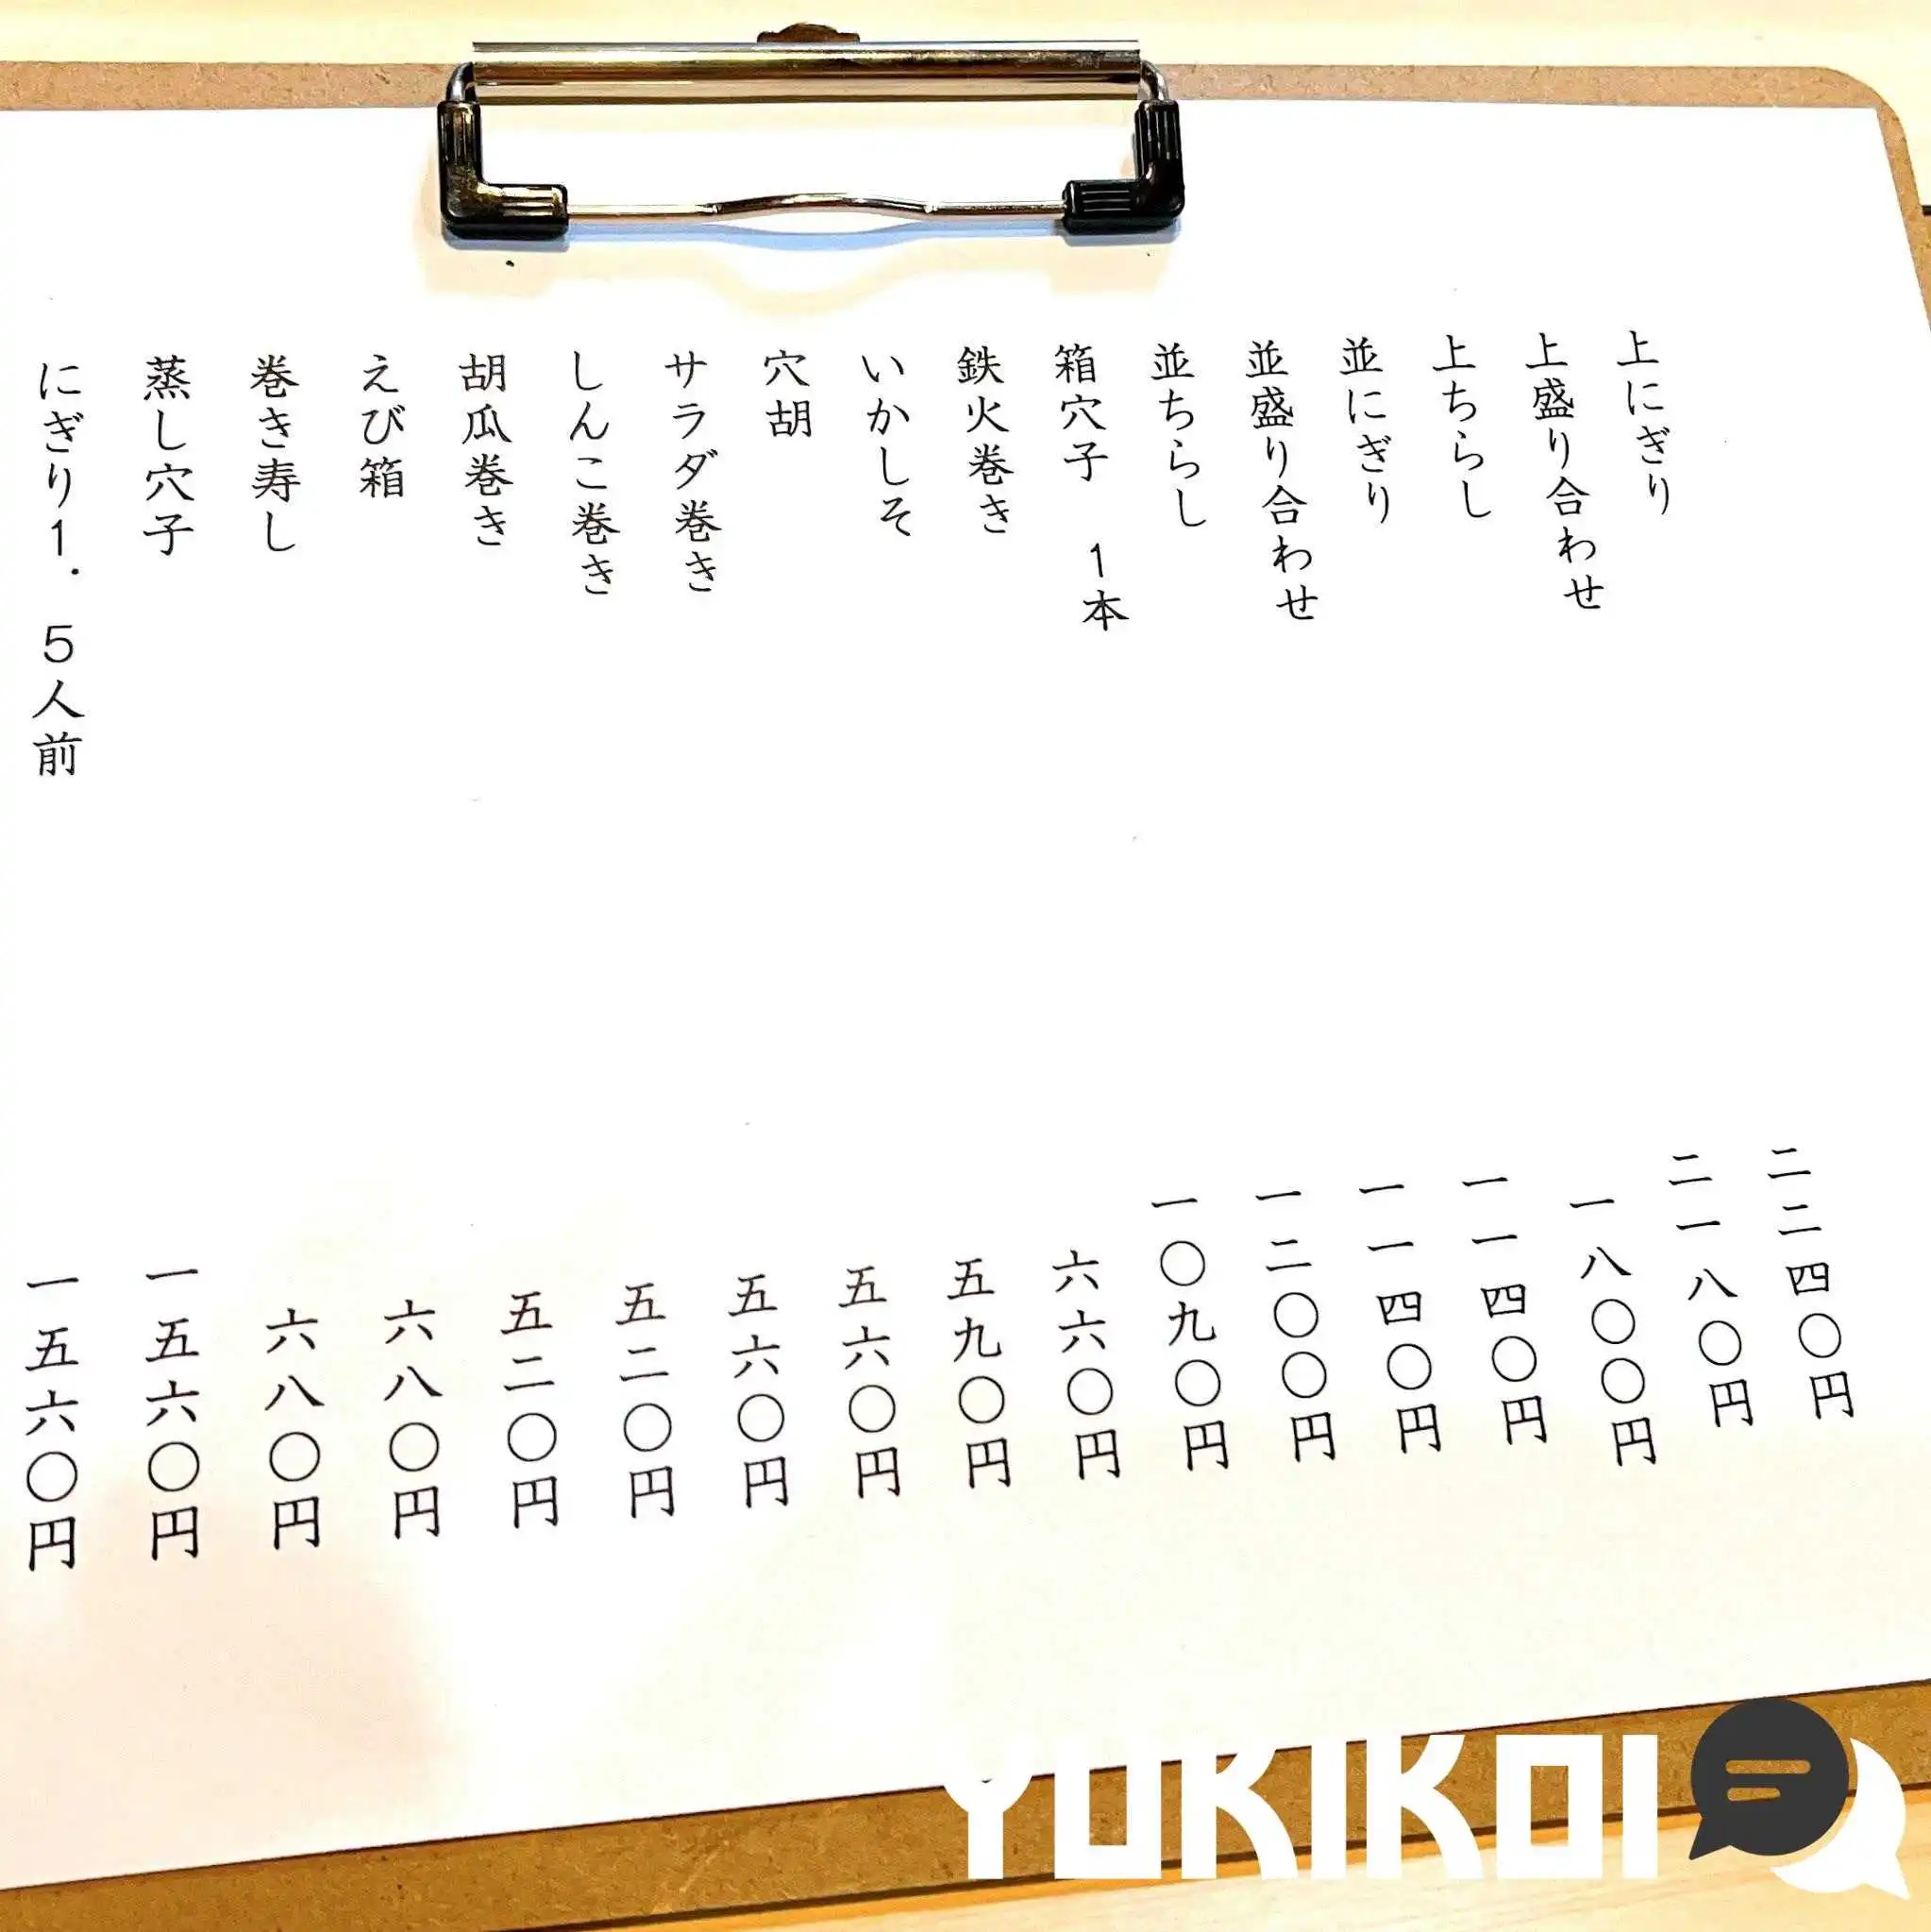 上にぎり 二二四〇円
上盛り合わせ 二一八〇円
上ちらし 一八〇〇円
並にぎり 一一四〇円
並盛り合わせ 一一四〇円
並ちらし 一二〇〇円
箱穴子 1本 一〇九〇円
鉄火巻き 六六〇円
いかしそ 五九〇円
穴胡 五六〇円
サラダ巻き 五六〇円
しんこ巻き 五二〇円
胡瓜巻き 五二〇円
えび箱 六八〇円
巻き寿し 六八〇円
蒸し穴子 一五六〇円
にぎり1.5人前 一五六〇円
YOKIKOI